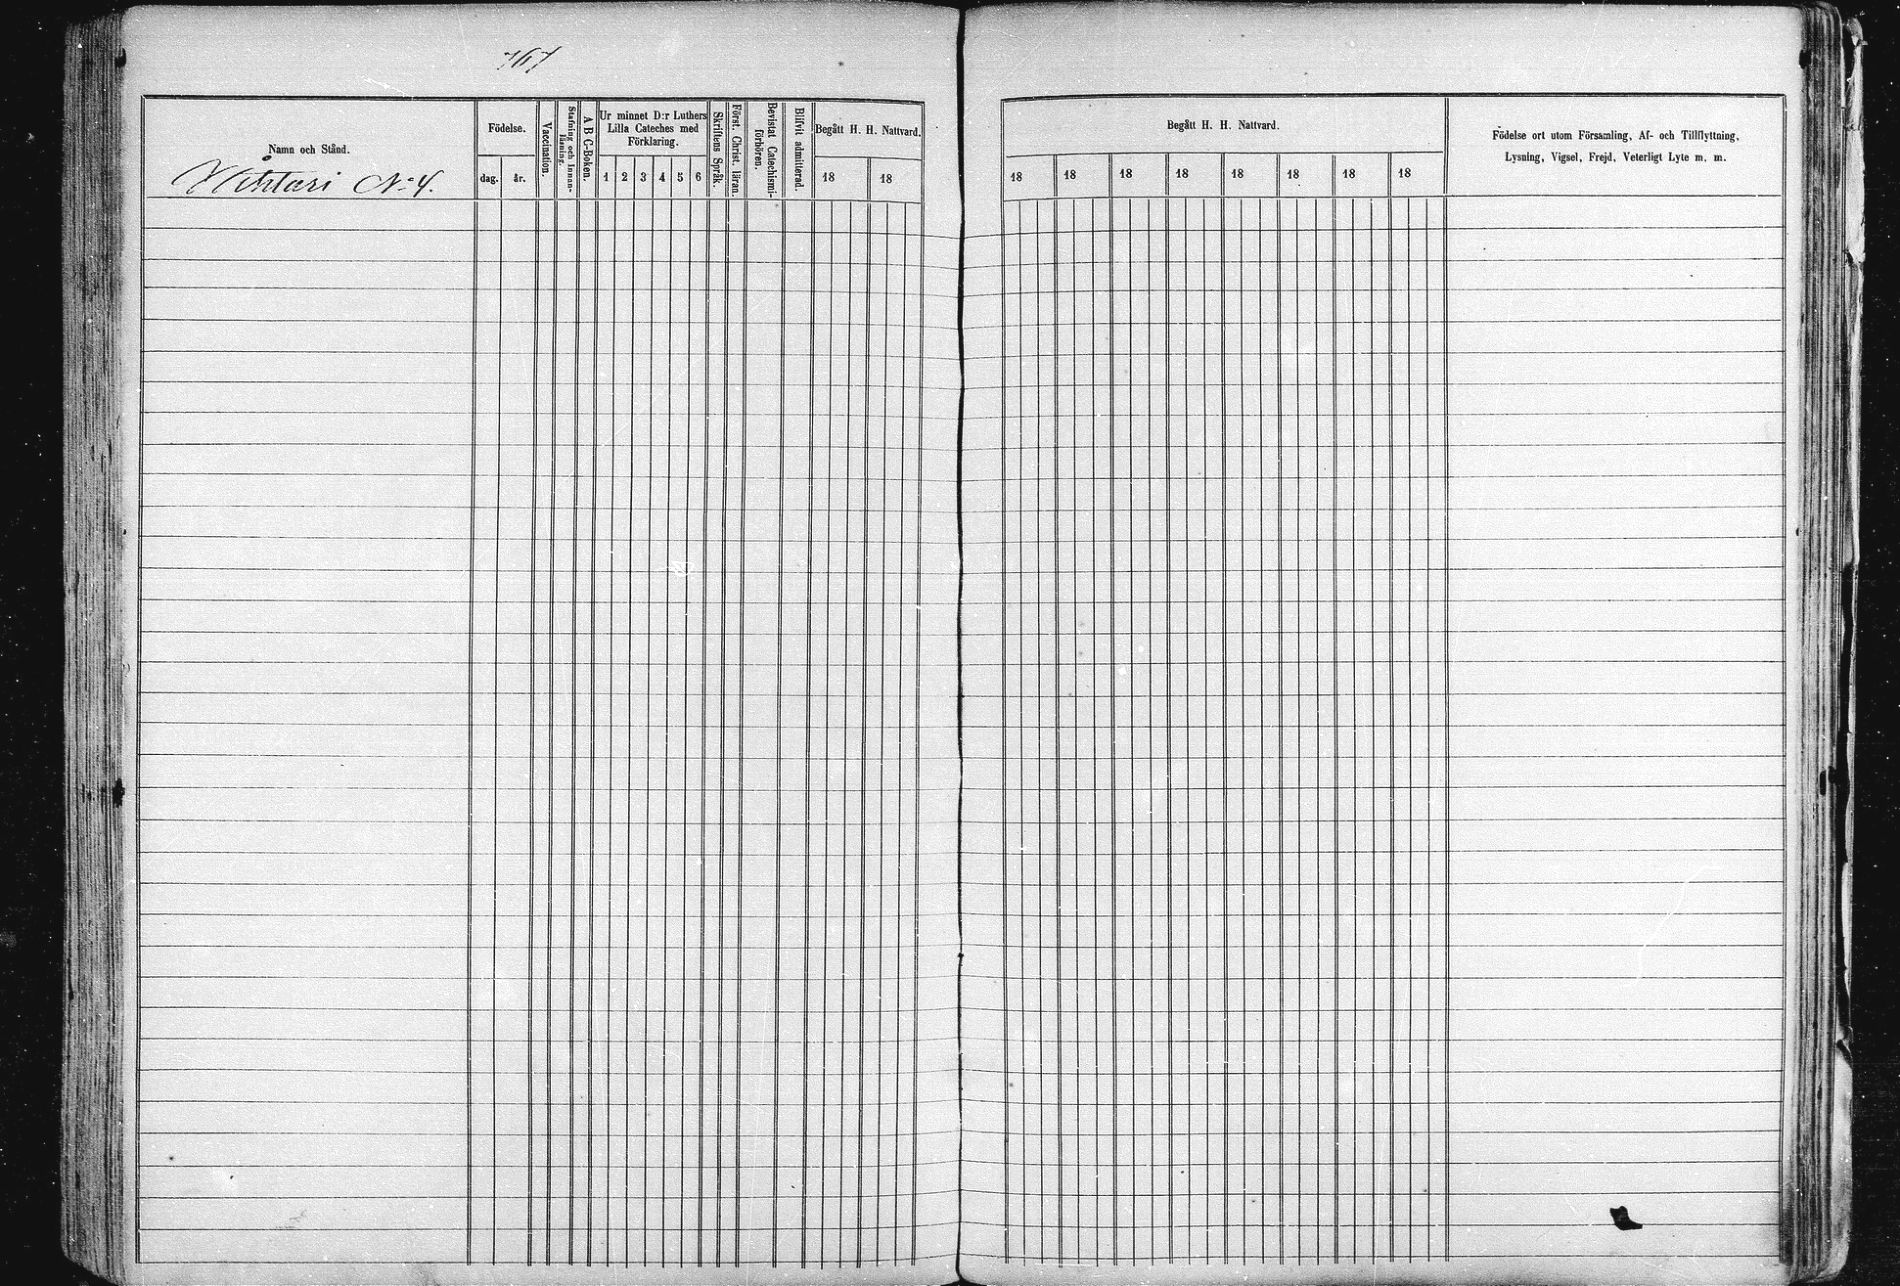 761
Namn och Stånd.
Wihtari No 4.
Födelse.
dag.
år.
Vaccination.
Stafning och Innan-
läsning.
A B C-Boken.
Ur minnet D:r Luthers
Lilla Cateches med
Förklaring.
1 2 3 4 5 6
Skriftens Språk.
Först. Christ. läran.
Bevistat Catechismi-
förhören.
Blifvit admitterad.
Begått H. H. Nattvard.
18 18
Begått H. H. Nattvard.
18 18 18 18 18 18 18 18
Födelse ort utom Församling, Af- och Tillflyttning,
Lysning, Vigsel, Frejd, Veterligt Lyte m. m.